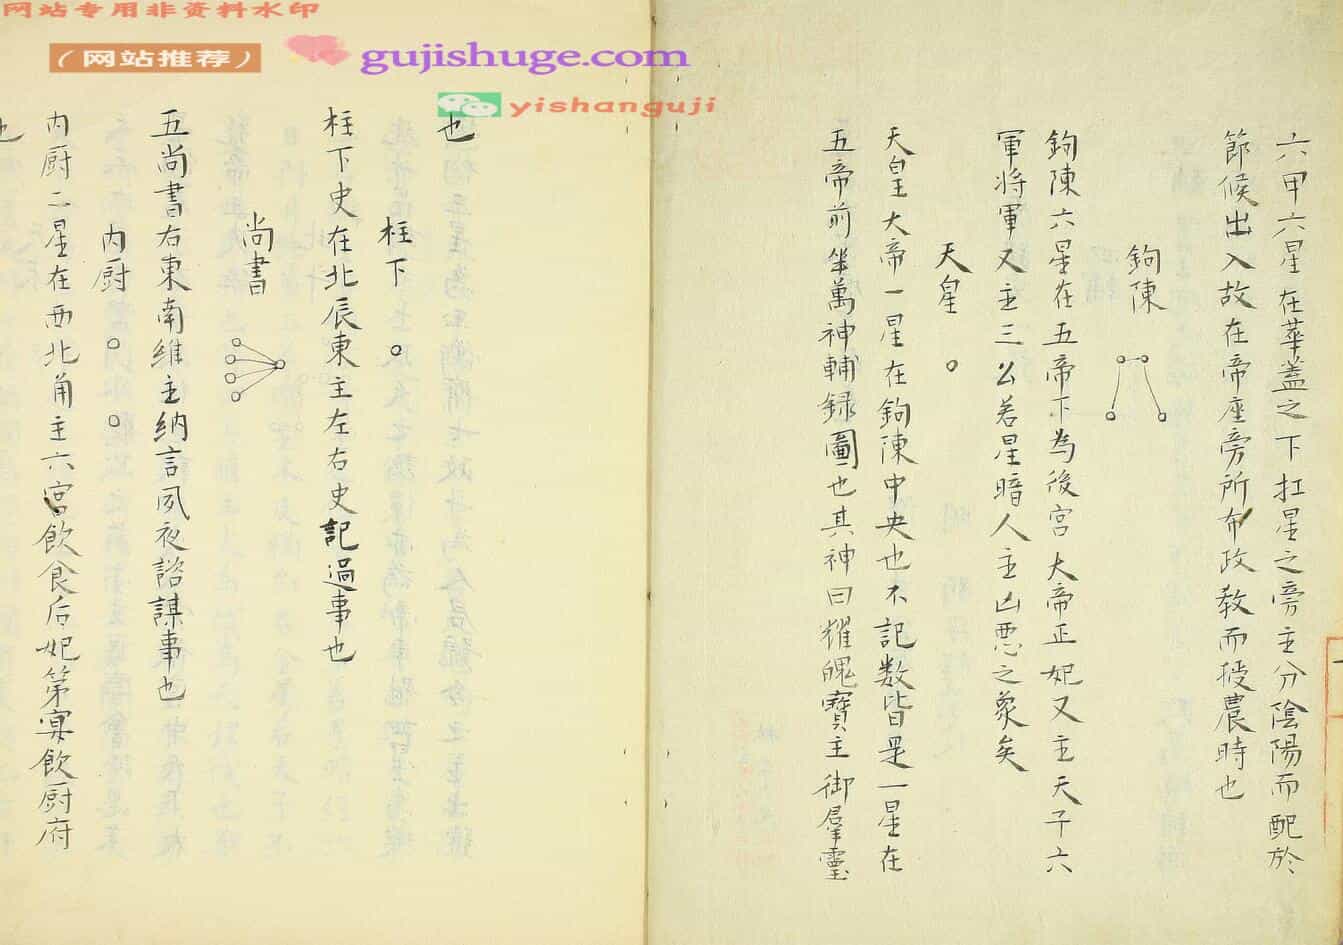 网站专用非资料水印
（网站推荐）
gujishuge.com
yishanguji
六甲六星在華蓋之下扛星之旁主分陰陽而配於
節候出入故在帝座旁所布政教而授農時也
鉤陳
鉤陳六星在五帝下為後宮大帝正妃又主天子六
軍将軍又主三公若星暗人主凶悪之象矣
天皇
天皇大帝一星在鉤陳中央也不記数皆是一星在
五帝前坐萬神輔録圖也其神曰耀魄寶主御羣靈
也
柱下
柱下史在北辰東主左右史記過事也
尚書
五尚書右東南維主納言夙夜諮謀事也
内厨
内厨二星在西北角主六宮飲食后妃第宴飲厨府
也